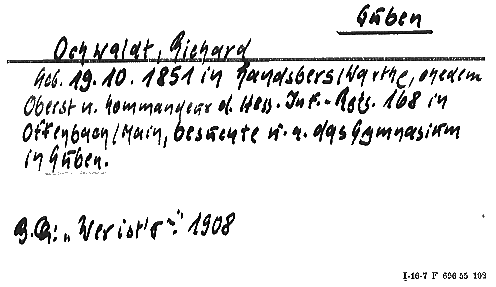 Guben
Ochwaldt, Richard
Geb. 19.10.1851 in Landsberg/Warthe, ehedem
Oberst u. Kommandeur d. Hess. Inf.-Rgts. 168 in
Offenbach/Main, besuchte u.a. das Gymnasium
in Guben.
B.Q.: „Wer ist's" 1908
I-16-7 F 696 55 102